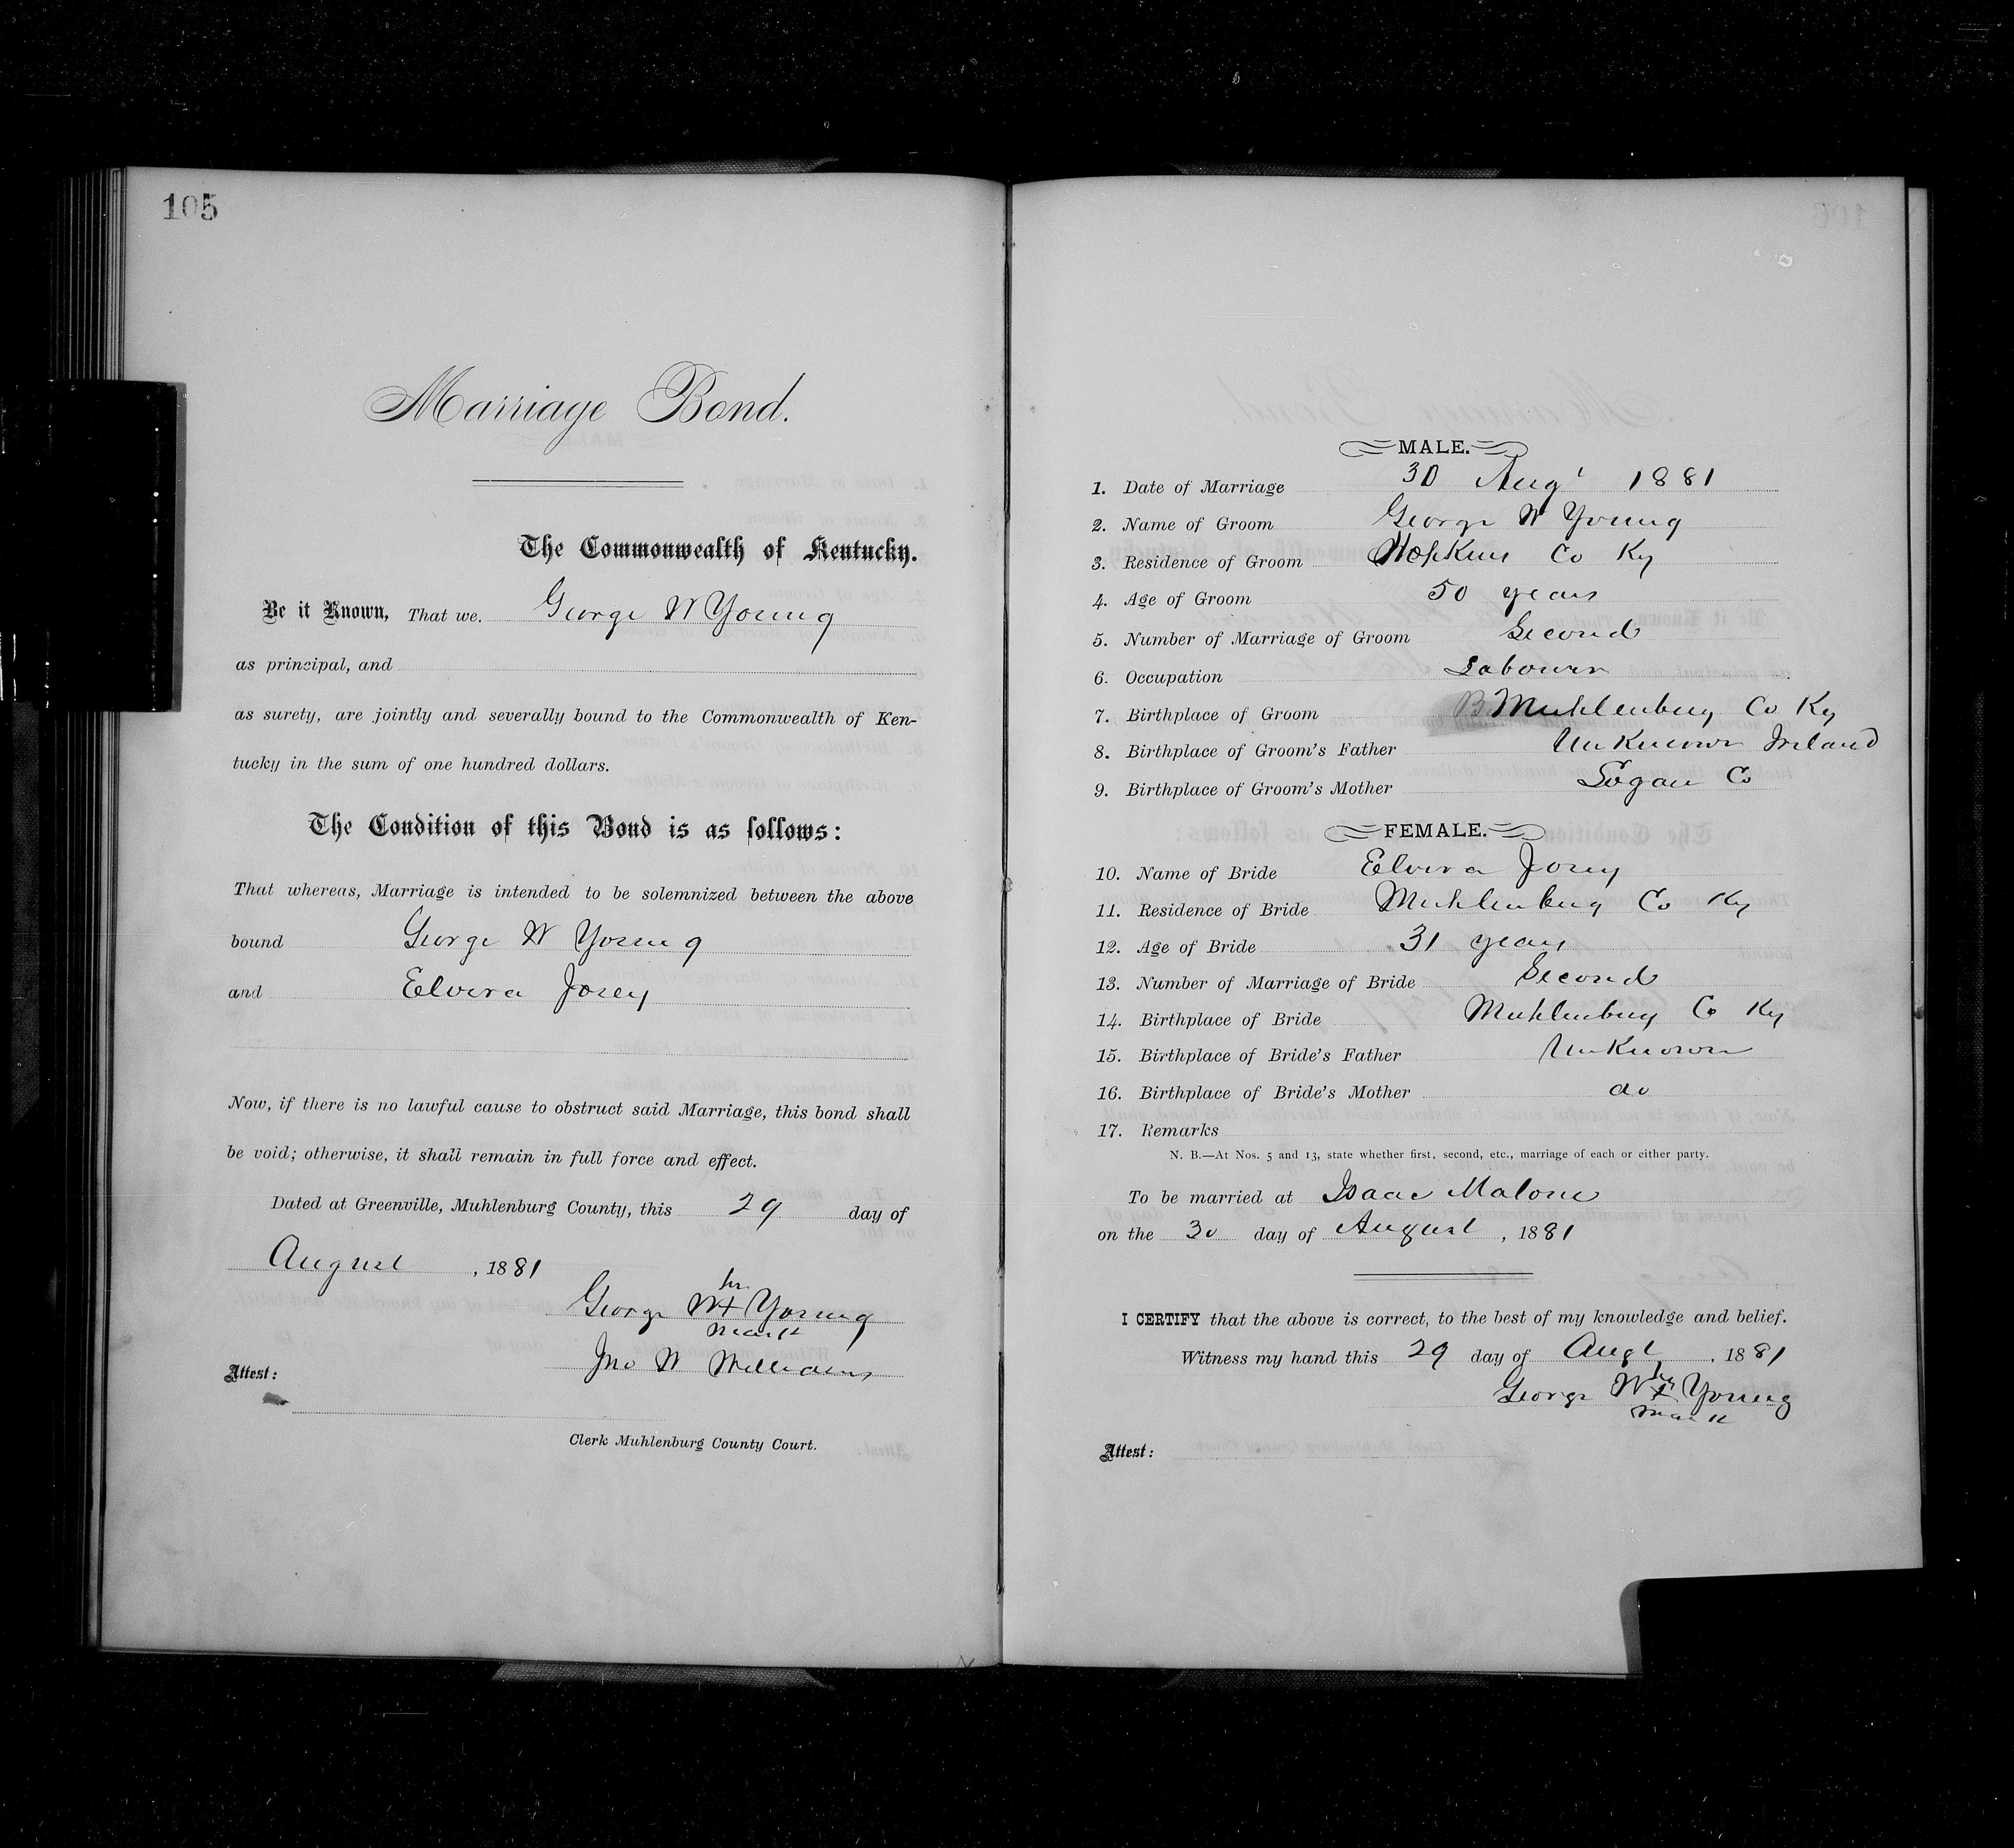 105
Marriage Bond.
The Commonwealth of Kentucky.
Be it Known, That we. George W Young
as principal, and
as surety, are jointly and severally bound to the Commonwealth of Ken-
tucky in the sum of one hundred dollars.
The Condition of this Bond is as follows:
That whereas, Marriage is intended to be solemnized between the above
bound George W Young
and Elvira Josey
Now, if there is no lawful cause to obstruct said Marriage, this bond shall
be void; otherwise, it shall remain in full force and effect.
Dated at Greenville, Muhlenburg County, this 29 day of
August, 1881
his
George W X Young
mark
Jno W Williams
Attest:
Clerk Muhlenburg County Court.
MALE.
1. Date of Marriage 30 Augt 1881
2. Name of Groom George W Young
3. Residence of Groom Hopkins Co Ky
4. Age of Groom 50 years
5. Number of Marriage of Groom Second
6. Occupation Labourer
7. Birthplace of Groom Muhlenburg Co Ky
8. Birthplace of Groom's Father Unknown Ireland
9. Birthplace of Groom's Mother Logan Co
FEMALE.
10. Name of Bride Elvira Josey
11. Residence of Bride Muhlenburg Co Ky
12. Age of Bride 31 years
13. Number of Marriage of Bride Second
14. Birthplace of Bride Muhlenburg Co Ky
15. Birthplace of Bride's Father Unknown
16. Birthplace of Bride's Mother do
17. Remarks
N. B.—At Nos. 5 and 13, state whether first, second, etc., marriage of each or either party.
To be married at Isaac Malone
on the 30 day of August, 1881
I CERTIFY that the above is correct, to the best of my knowledge and belief.
Witness my hand this 29 day of Augt, 1881
his
George W X Young
mark
Attest: